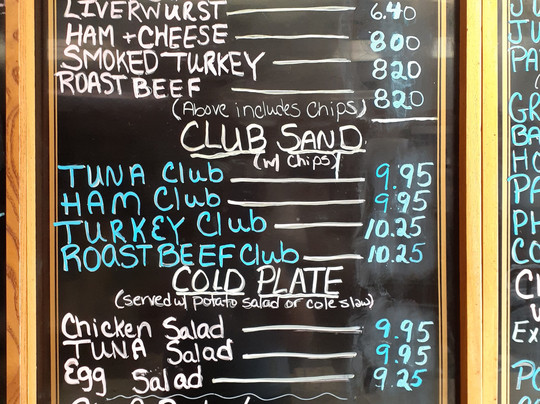 LIVERWURST 6.40
HAM + CHEESE 800
SMOKED TURKEY 820
ROAST BEEF 820
(Above includes Chips)
CLUB SAND
(w/ Chips)
TUNA Club 9.95
HAM Club 9.95
TURKEY Club 10.25
ROAST BEEF Club 10.25
COLD PLATE
(served w/ potato salad or cole slaw)
Chicken Salad 9.95
TUNA Salad 9.95
Egg Salad 9.25